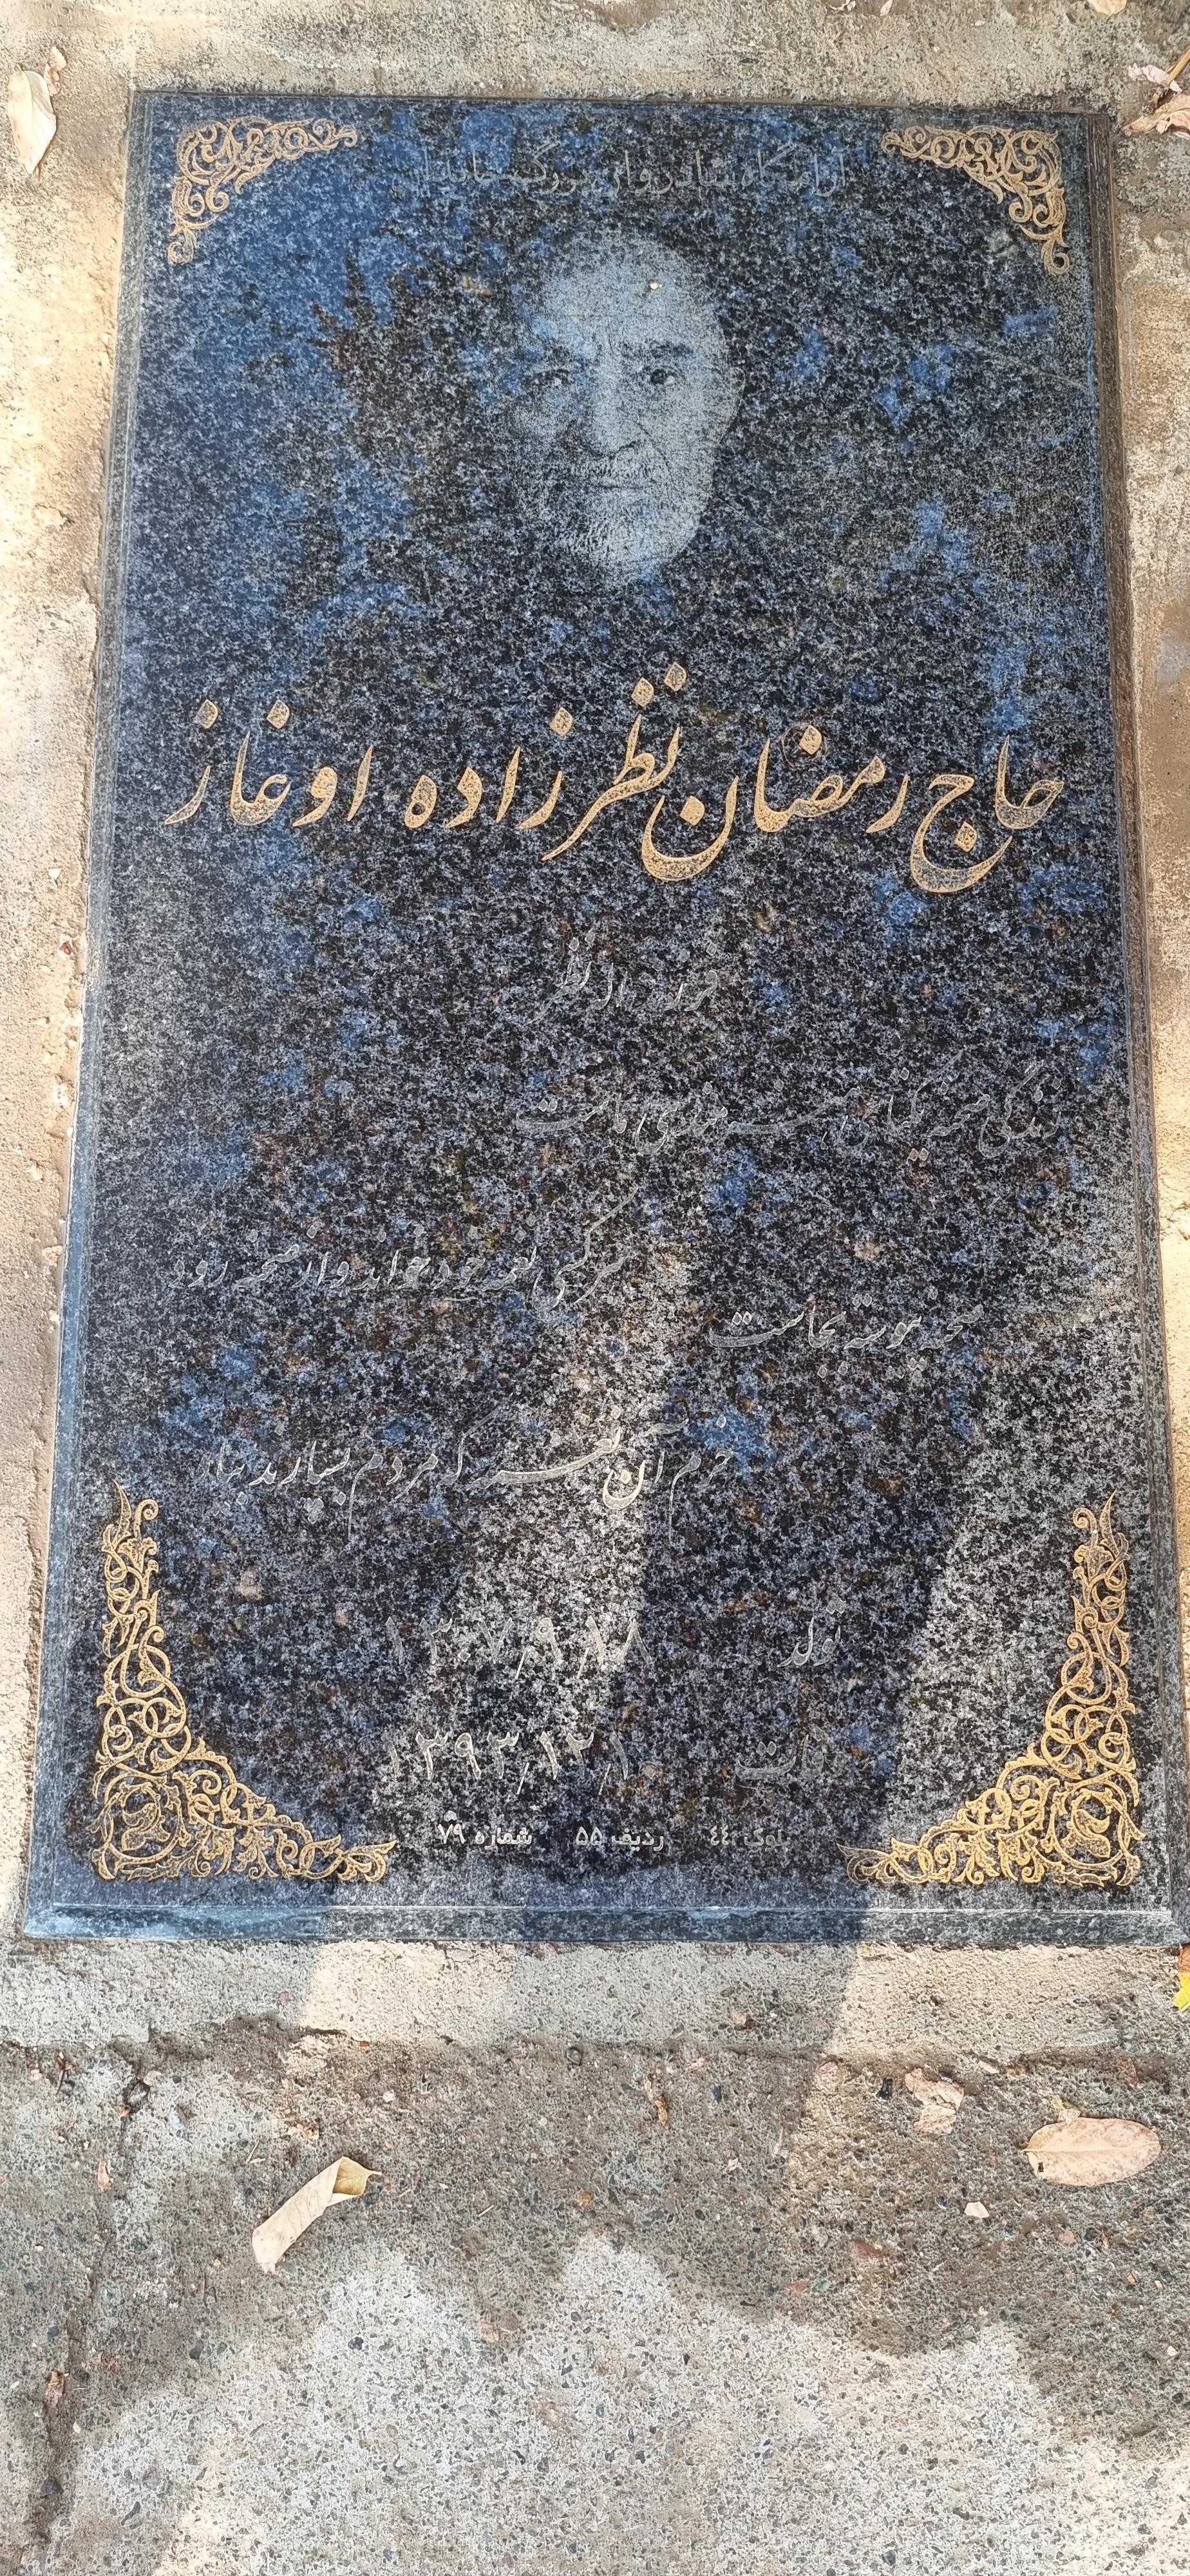 آرامگاه شادروان بزرگ خاندان
حاج رمضان نظرزاده اوغاز
فرزند نظر
زندگی صحنه یکتای هنرمندی ماست
هر کسی نغمه خود خواند و از صحنه رود
صحنه پیوسته بجاست
خرم آن نغمه که مردم بسپارند بیاد
تولد ۱۳۰۷٫۹٫۱۸
وفات ۱۳۹۳٫۱۲٫۱۰
بلوک ٤٤ ردیف ۵۵ شماره ۷۹